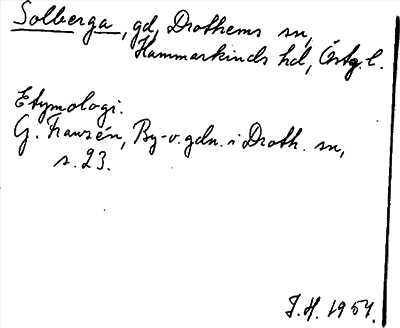 Solberga, gd, Drothems sn,
Hammarkinds hd, Östg.l.
Etymologi.
G. Franzén, By- o. gdn. i Droth. sn,
s. 23.
J.H. 1954.